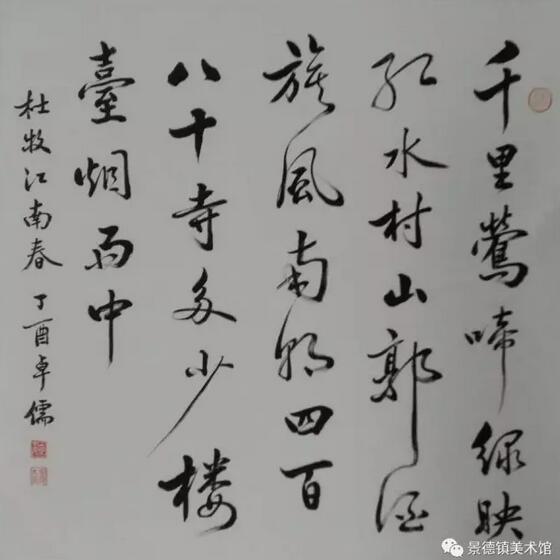 千里鶯啼绿映
红水村山郭酒
旗風南朝四百
八十寺多少楼
臺烟雨中
杜牧江南春 丁酉卓儒
景德镇美术馆